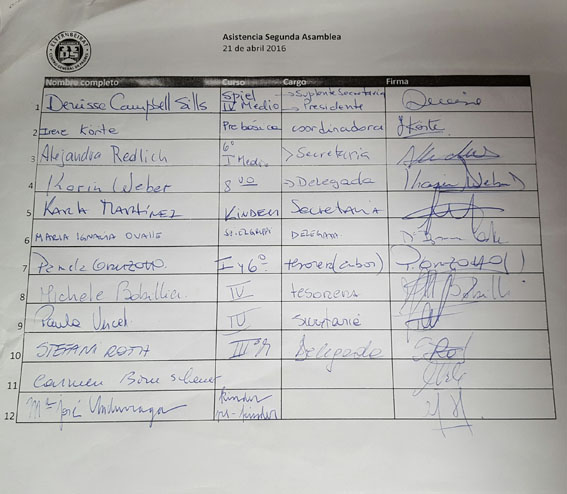 ELTERNBEIRAT
DS
Asistencia Segunda Asamblea
21 de abril 2016
Nombre completo Curso Cargo Firma
1 Denisse Campbell Sills Spiel IV Medio → Suplente Secretaria → Presidente
2 Irene Korte Prebásica coordinadora I Korte
3 Alejandra Redlich 6º I Medio > Secretaria
4 Karin Weber 8 vo → Delegada Karin Weber
5 KARLA MARTÍNEZ KINDER SECRETARIA
6 MARIA IGNACIA OVALLE DELEGADA
7 I y 6º tesorera (ambos)
8 Michele IV tesorera
9 Paula IV secretaria
10 STEFANI ROTH III Delegada
11 Carmen
12 Mª José Undurraga kinder pre-kinder